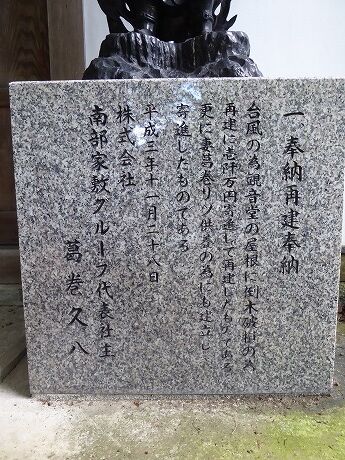 一 奉納再建奉納
台風の為観音堂の屋根に倒木破損の為
再建に壱阡万円寄進して再建したものである
更に妻昌泰リツ供養の為にも建立し
寄進したものである
平成三年十一月二十八日
株式会社
南部家敷グループ代表社主
葛巻久八